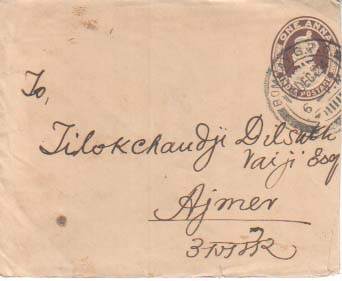 ONE ANNA
INDIA POSTAGE
To,
Tilokchandji Dilsukh
Vaiji Esq
Ajmer
अजमेर